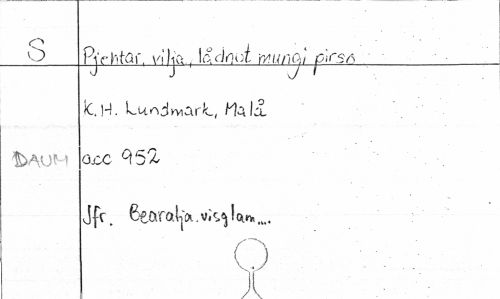 S Pjehtar, vilja, lådnot mungi pirso
K.H. Lundmark, Malå
DAUM acc 952
Jfr. Bearalja.visglam....